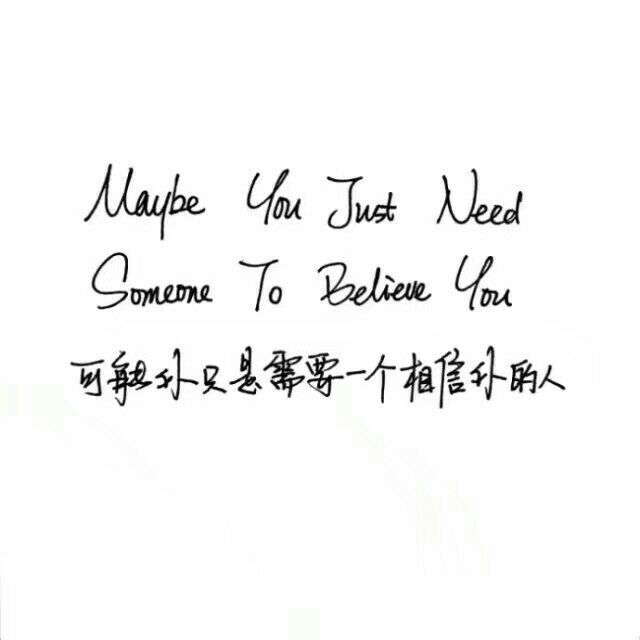 Maybe You Just Need
Someone To Believe You
可能你只是需要一个相信你的人